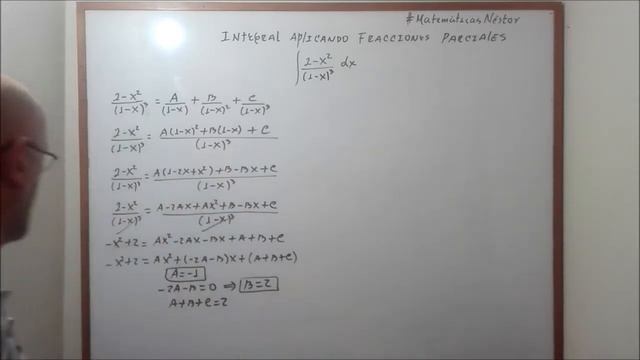 #Matemáticas Néstor
Integral Aplicando Fracciones Parciales
∫ (2-x²)/(1-x)³ dx
(2-x²)/(1-x)³ = A/(1-x) + B/(1-x)² + C/(1-x)³
(2-x²)/(1-x)³ = (A(1-x)²+B(1-x)+C)/(1-x)³
(2-x²)/(1-x)³ = (A(1-2x+x²)+B-Bx+C)/(1-x)³
(2-x²)/(1-x)³ = (A-2Ax+Ax²+B-Bx+C)/(1-x)³
-x²+2 = Ax²-2Ax-Bx+A+B+C
-x²+2 = Ax²+(-2A-B)x+(A+B+C)
A=-1
-2A-B=0 ⇒ B=2
A+B+C=2